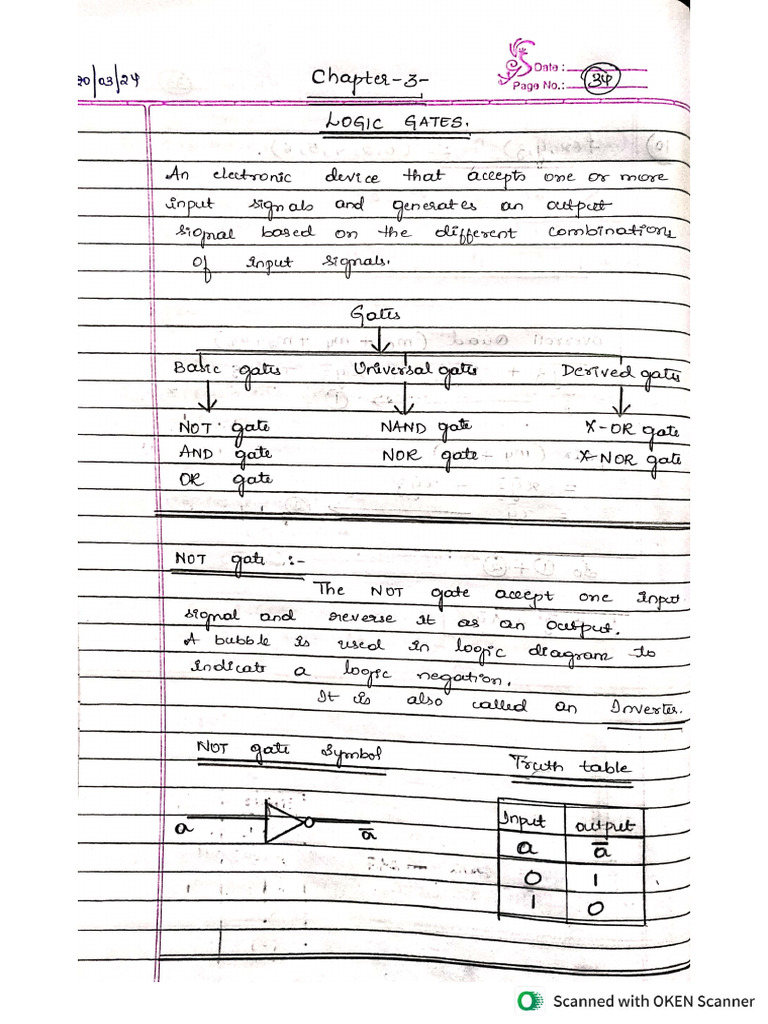 20/03/24
Chapter-3-
Date :
Page No.: 34
LOGIC GATES.
An electronic device that accepts one or more
input signals and generates an output
signal based on the different combinations
of input signals.
Gates
Basic gates Universal gates Derived gates
NOT gate NAND gate X-OR gate
AND gate NOR gate X-NOR gate
OR gate
NOT gate :-
The NOT gate accept one input
signal and reverse it as an output.
A bubble is used in logic diagram to
indicate a logic negation.
It is also called an Inverter.
NOT gate Symbol Truth table
a a̅
Input output
a a̅
0 1
1 0
Scanned with OKEN Scanner